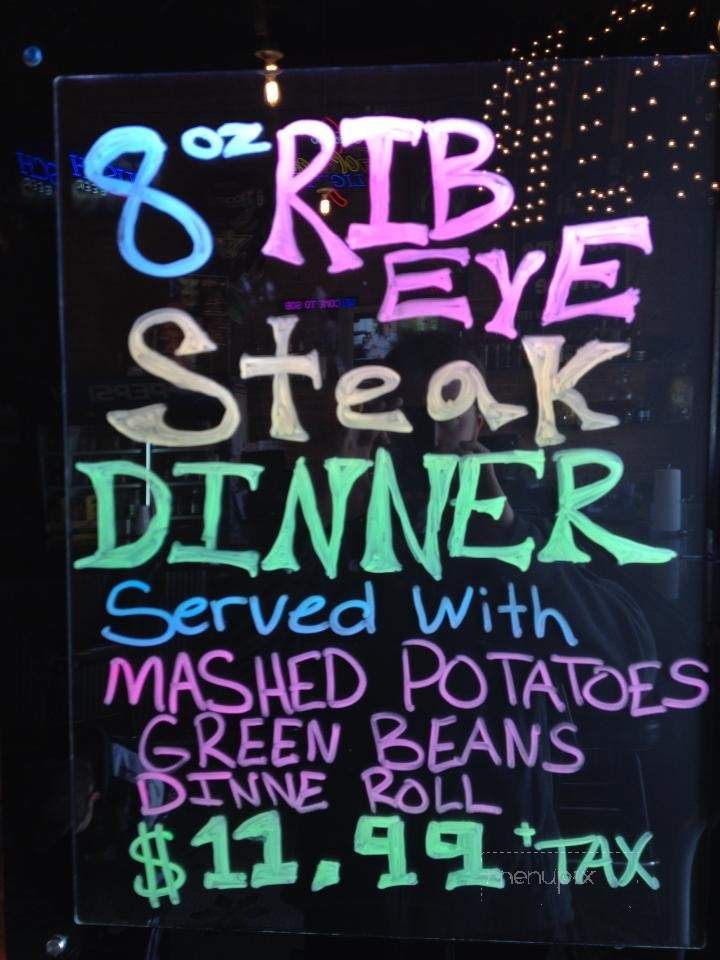 8 oz RIB
EYE
Steak
DINNER
Served With
MASHED POTATOES
GREEN BEANS
DINNE ROLL
$11.99 + TAX
menupix